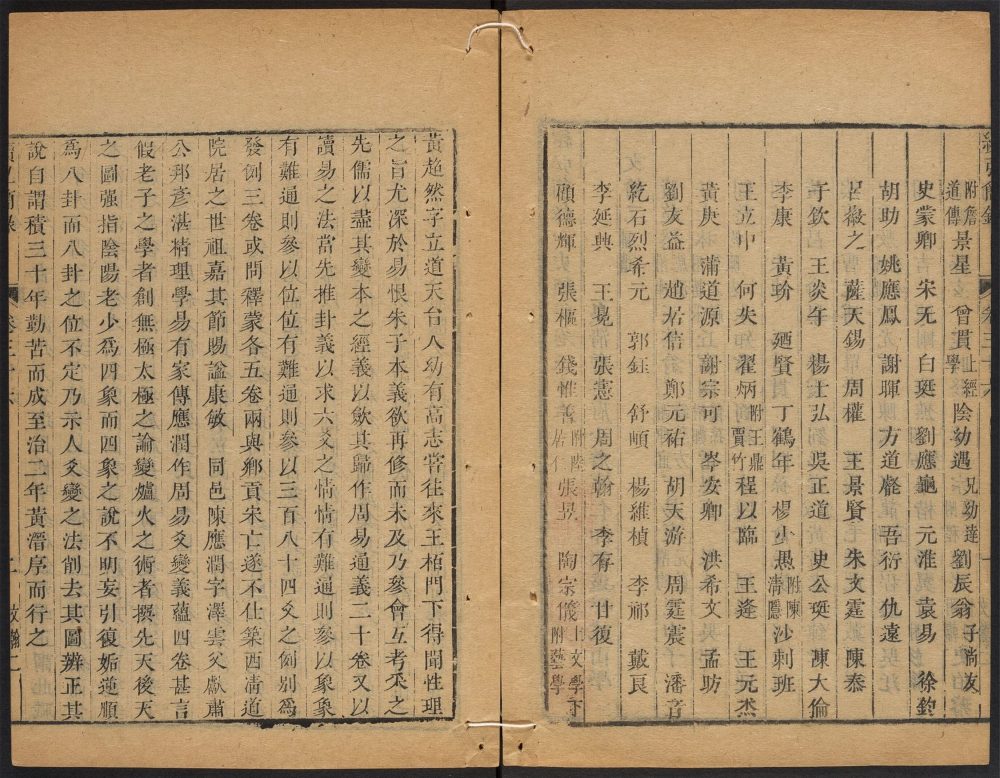 附詹道傳 景星 曾貫 以上經學 陰幼遇 兄幼達 劉辰翁 子尚友
史蒙卿 宋无 白珽 劉應龜 元淮 袁易 徐鈞
胡助 姚應鳳 謝暉 方道叡 吾衍 仇遠
呂徽之 薩天錫 周權 王景賢 朱文霆 陳泰
于欽 王炎午 楊士弘 吳正道 史公珽 陳大倫
李康 黃玠 廼賢 丁鶴年 楊少愚 附陳清隱 沙剌班
王立中 何失 翟炳 附王鼎賈竹 程以臨 王逢 王元杰
黃庚 蒲道源 謝宗可 岑安卿 洪希文 孟昉
劉友益 趙若信 鄭元祐 胡天游 周霆震 潘音
紇石烈希元 郭鈺 舒頔 楊維楨 李祁 戴良
李延興 王冕 張憲 周之翰 李存 甘復
顧德輝 張樞 錢惟善 附陸居仁 張昱 陶宗儀 上文學下附藝學
黃超然字立道天台人幼有高志嘗往來王柏門下得聞性理
之旨尤深於易恨朱子本義欲再修而未及乃參會互考采之
先儒以盡其變本之經義以歛其歸作周易通義二十卷又以
讀易之法當先推卦義以求六爻之情情有難通則參以象象
有難通則參以位位有難通則參以三百八十四爻之例別爲
發例三卷或問釋蒙各五卷兩與鄉貢宋亡遂不仕築西清道
院居之世祖嘉其節賜諡康敏 同邑陳應潤字澤雲父獻肅
公邦彥湛精理學易有家傳應潤作周易爻變義蘊四卷甚言
假老子之學者創無極太極之論變爐火之術者撰先天後天
之圖强指陰陽老少爲四象而四象之說不明妄引復姤逆順
爲八卦而八卦之位不定乃示人爻變之法削去其圖辨正其
說自謂積三十年勤苦而成至治二年黃溍序而行之
卷三十六